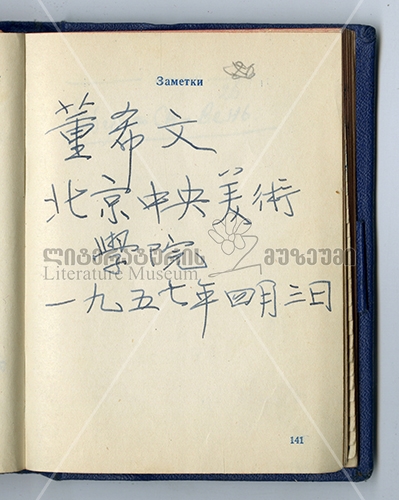 Заметки
董希文
北京中央美術
學院
ლიტერატურის მუზეუმი
Literature Museum
一九五七年四月三日
141